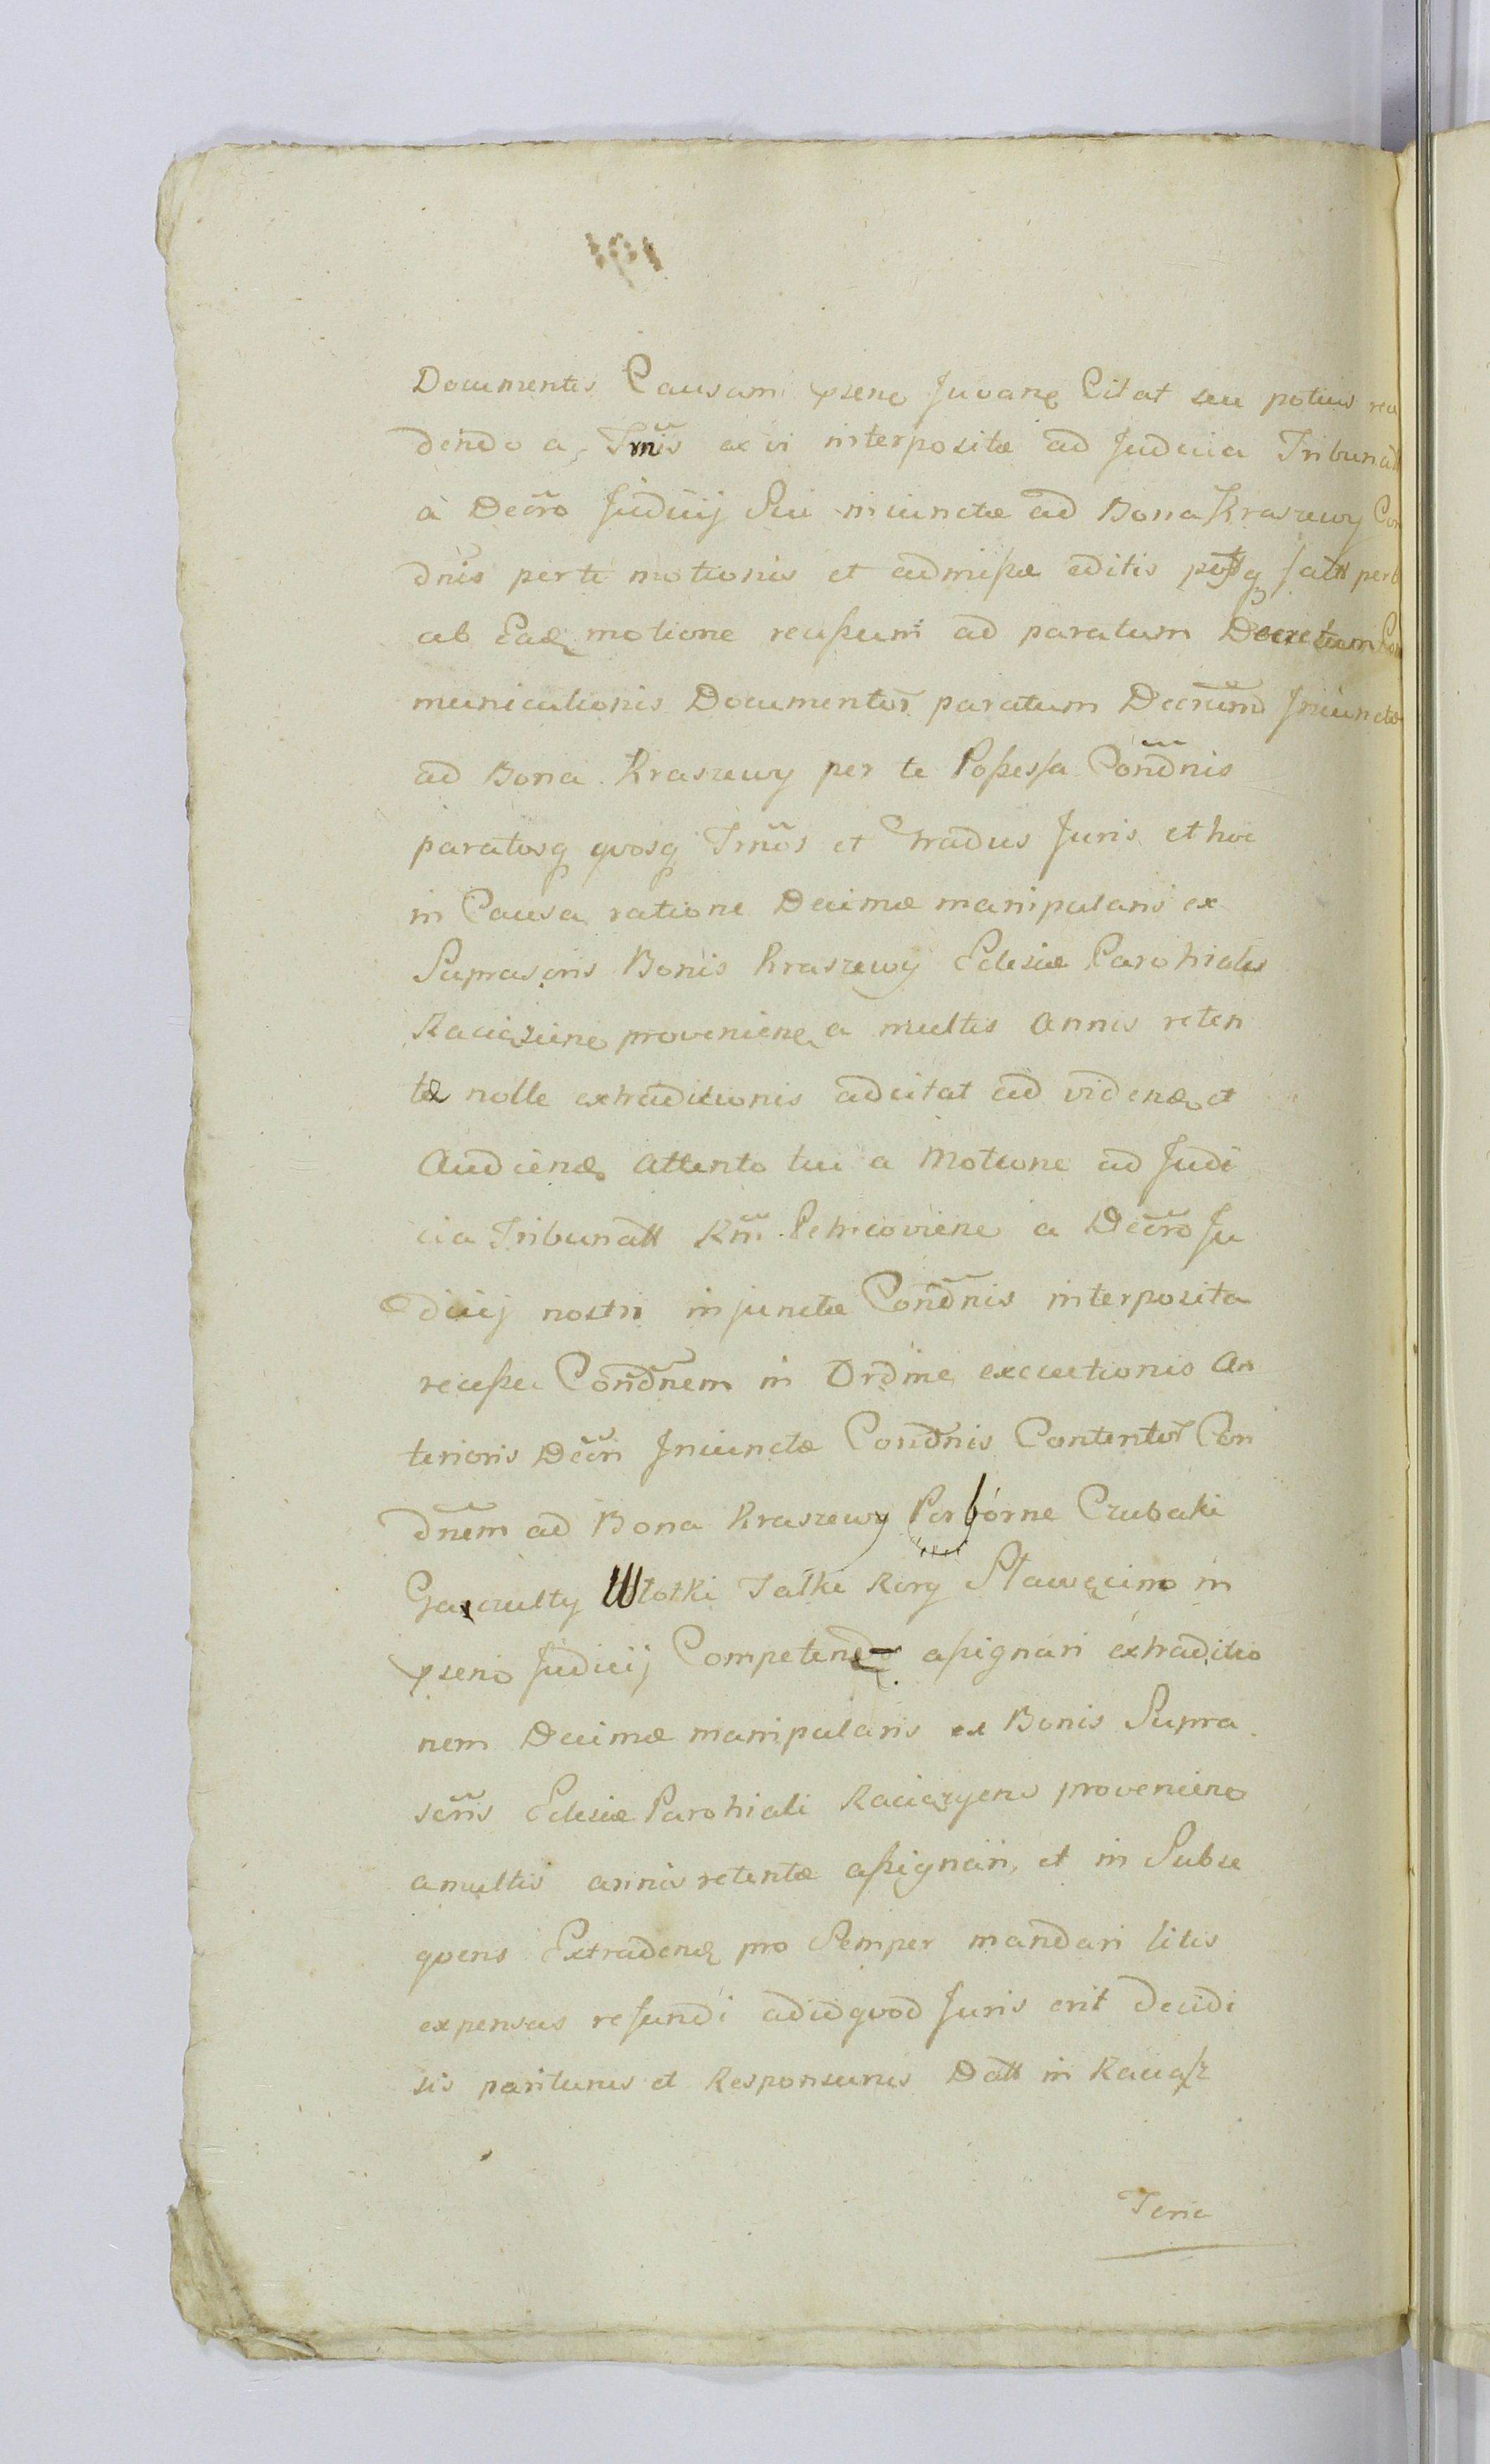 Documentis Causam psene Juvane Citat seu potius rea
dendo a Trnis ex vi interpositæ ad Judicia Tribunall
à Decro Judicij Sui iniunctæ ad Bona Kraszewy Con
dnis per te motionis et admissæ editis postq fatt per te
ab Eade motione recessum ad paratum Decretum Com
municationis Documentor paratum Decrumd Iniunctæ
ad Bona Kraszewy per te Possessa Condnis
paratosq quosq Trnos et Gradus Juris et hoc
in Causa ratione Decimæ manipularis ex
Suprascris Bonis Kraszewy Eclesiæ Parohialis
Raciąziene proveniene a multis Annis reten
tæ nolle extraditionis adcitat ad vidende et
Audiende Attento tui a Motione ad Judi
cia Tribunall Rni Petricoviene a Decro Ju
dicij nostri injunctæ Condnis interposita
recessu Condnem in Ordine executionis An
terioris Decri Iniunctæ Condnis Contentor Con
dnem ad Bona Kraszewy Porborne Czubaki
Gaczulty Wlotki Falki Rory Sławęcino in
pseno Judicij Competen assignari extraditio
nem Decimæ manipularis ex Bonis Supra
scris Eclesiæ Parohiali Raciązyene proveniene
a multis annis retentæ assignari, et in Subse
quens Extradende pro Semper mandari litis
expensas refundi ad id quod Juris erit Decidi
sis pariturus et Responsurus Datt in Raciąz
Feria